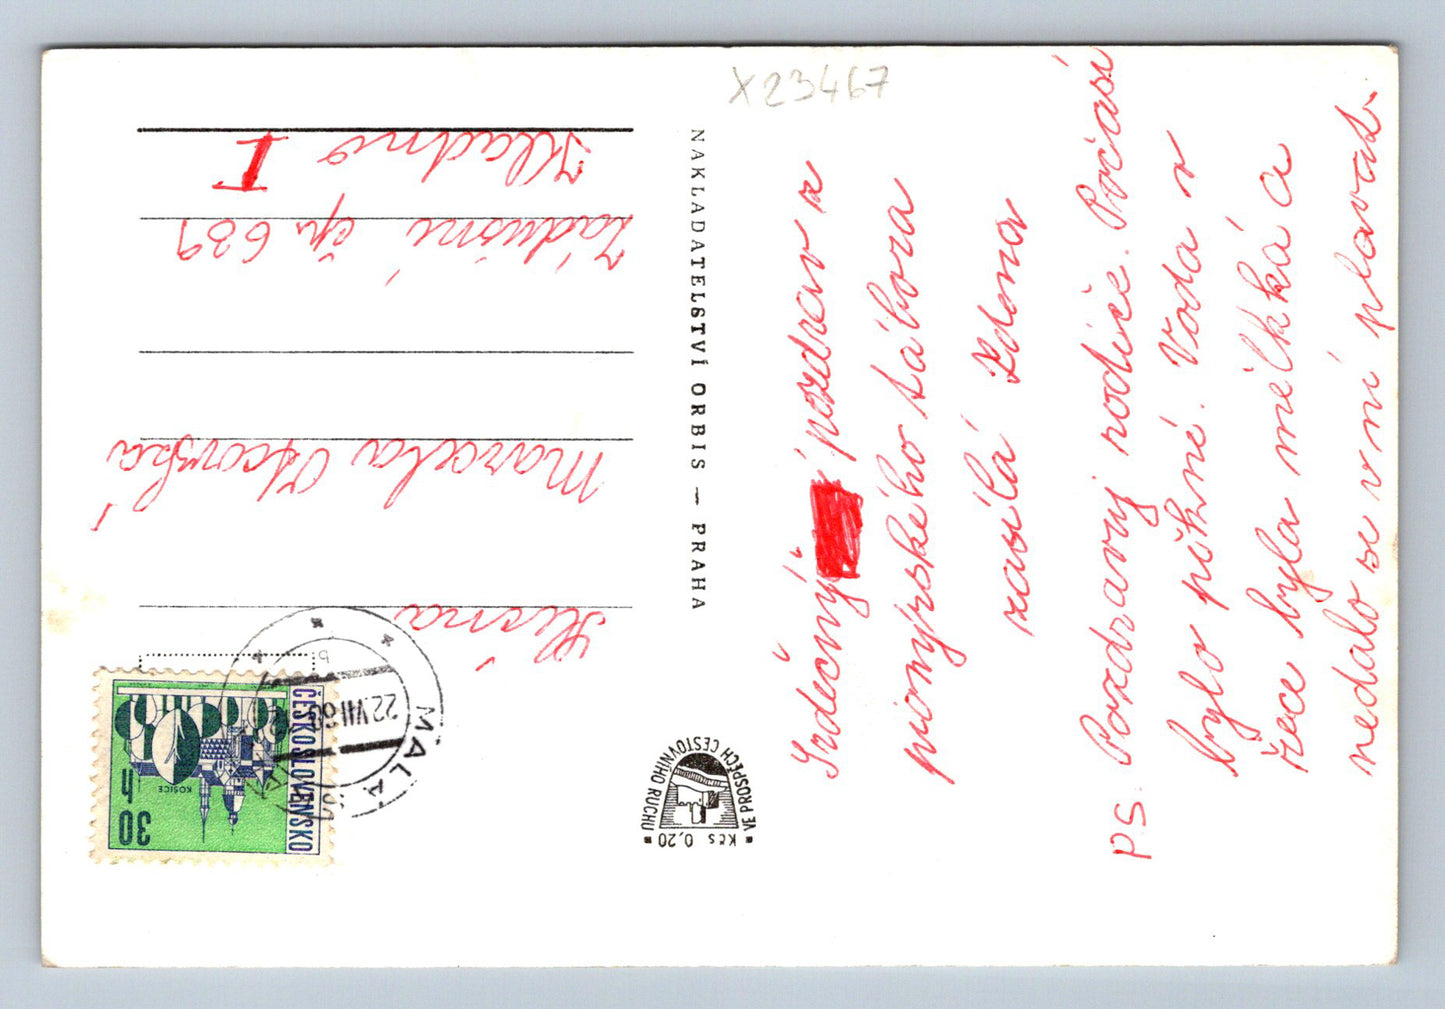 X23467
Srdečný pozdrav z
pionýrského tábora
zasílá Zdena
PS. Pozdravuj rodiče. Počasí
bylo pěkné. Voda v
řece byla mělkká a
nedalo se v ní plavat.
NAKLADATELSTVÍ ORBIS — PRAHA
Kčs 0,20
VE PROSPĚCH CESTOVNÍHO RUCHU
ČESKOSLOVENSKO
30 h
KOŠICE
22.VII.69
MALÁ
b
Marcela
Zádušní čp. 639
Kladno I